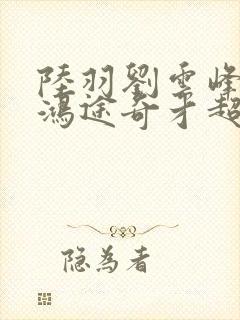 陸羽劉雲峰
鴻途奇才超
隐為者